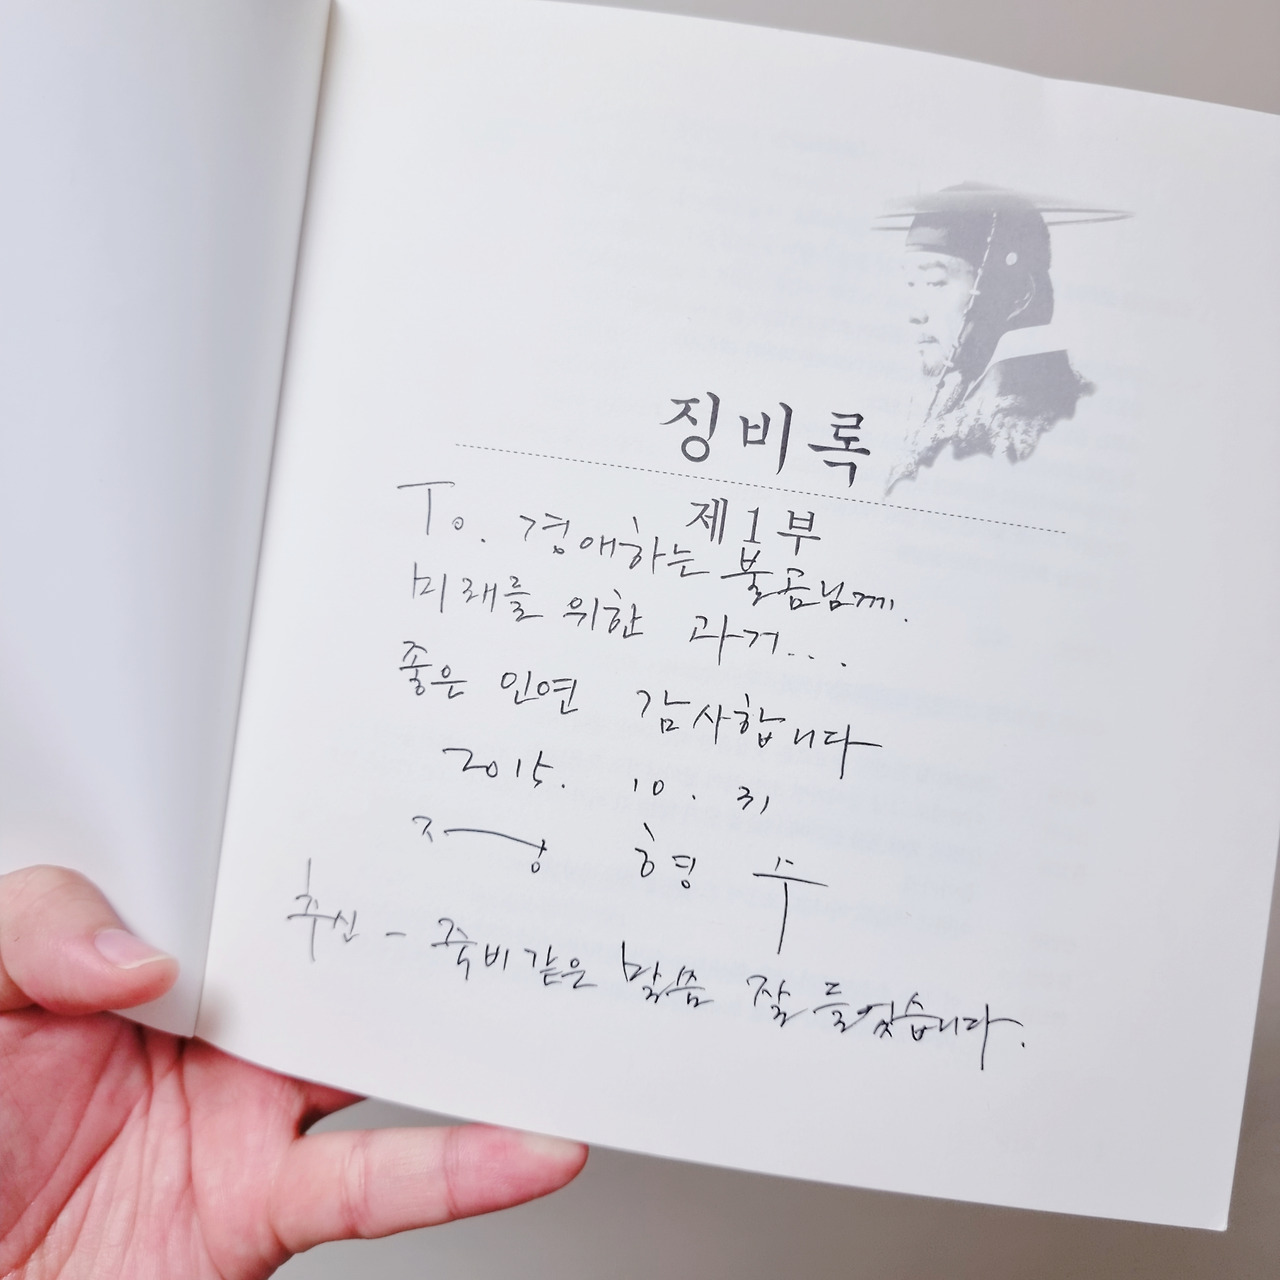 징비록
제1부
To. 경애하는 불곰님께.
미래를 위한 과거...
좋은 인연 감사합니다
2015. 10. 31
정형수
추신 - 죽비같은 말씀 잘 들었습니다.